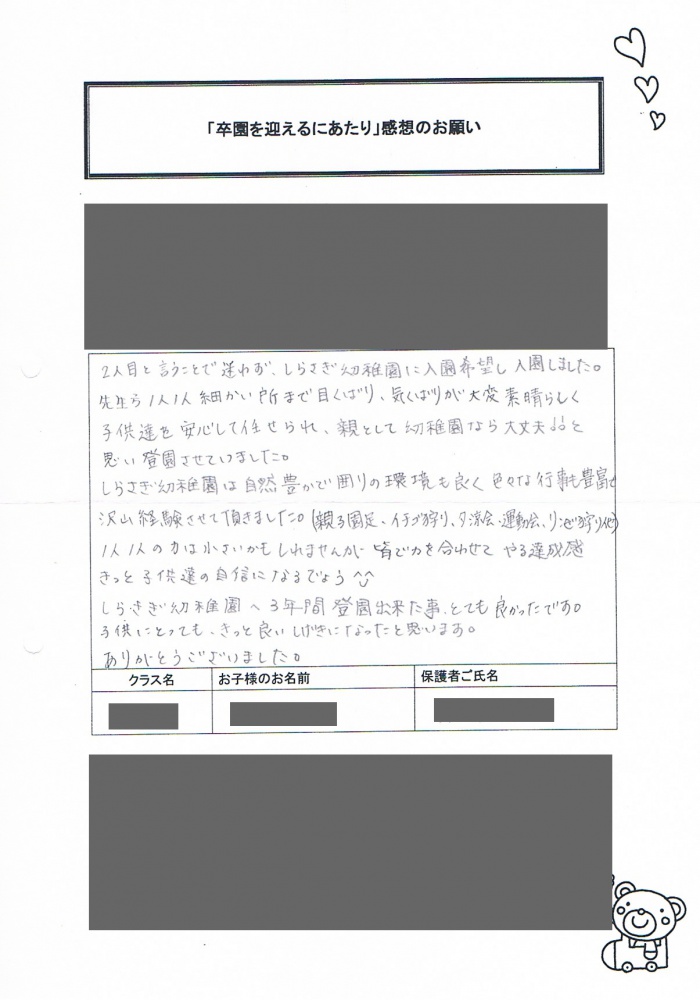 「卒園を迎えるにあたり」感想のお願い
2人目と言うことで迷わず、しらさぎ幼稚園に入園希望し入園しました。
先生も1人1人細かい所まで目くばり、気くばりが大変素晴らしく
子供達を安心して任せられ、親として幼稚園なら大丈夫と
思い登園させていました。
しらさぎ幼稚園は自然豊かで囲りの環境も良く色々な行事も豊富で
沢山経験させて頂きました。(親子遠足、イチゴ狩り、夕涼会、運動会、リンゴ狩り他)
1人1人の力は小さいかもしれませんが皆で力を合わせてやる達成感
きっと子供達の自信になるでしょう^^
しらさぎ幼稚園へ3年間登園出来た事、とても良かったです。
子供にとっても、きっと良いしげきになったと思います。
ありがとうございました。
クラス名 お子様のお名前 保護者ご氏名